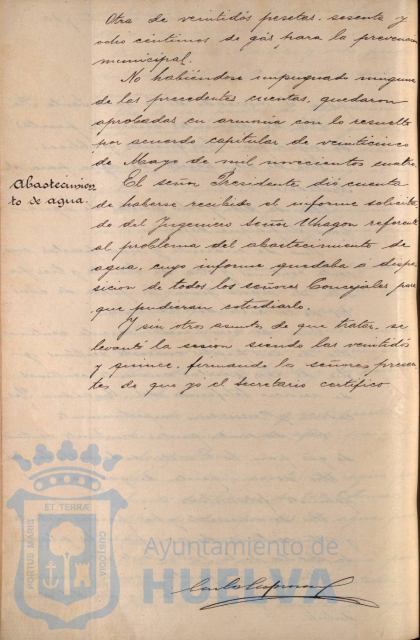 Otra de veintidós pesetas, sesenta y
ocho céntimos de gas para la prevencion
municipal.
No habiéndose impugnado ninguna
de las precedentes cuentas, quedaron
aprobadas en armonia con lo resuelto
por acuerdo capitular de veinticinco
de Mayo de mil novecientos cuatro.
Abastecimien
to de agua.
El señor Presidente dió cuenta
de haberse recibido el informe solicita
do del Ingeniero Señor Uhagon referente
al problema del abastecimiento de
agua, cuyo informe quedaba á dispo
sicion de todos los señores Concejales para
que pudieran estudiarlo.
Y sin otros asuntos de que tratar, se
levantó la sesion siendo las veintidos
y quince, firmando los señores presen
tes de que yo el Secretario certifico
ET TERRÆ
PORTUS MARIS
CUSTODIA
Ayuntamiento de
HUELVA